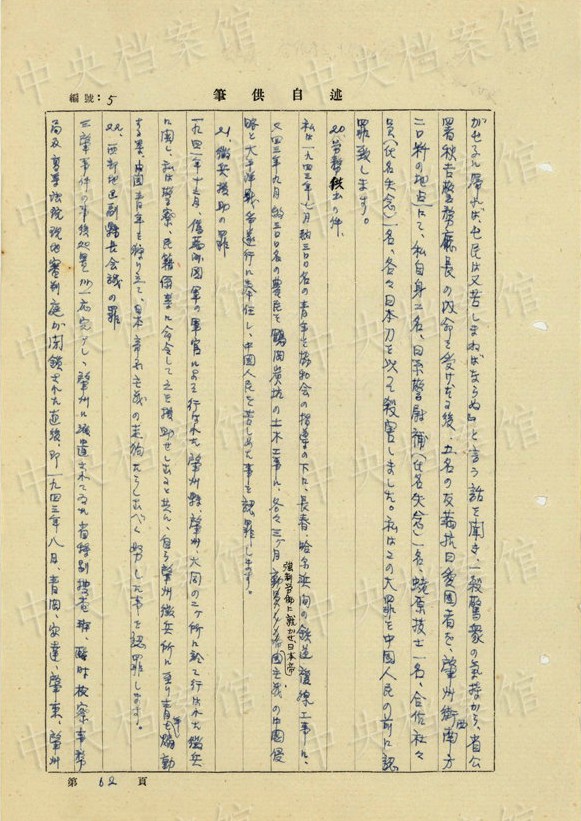 中央档案馆
述自供筆
編號：5
がせるに層れば、住民は又苦しまねばならぬ』と言う話を聞き、一殺警衆の気持から、省公
署秋吉警務廳長の命を受けたる後、五名の反満抗日愛国者を、肇州街西南方
二口粁の地点にて、私自身二名、日系警尉補（氏名失念）一名、蛯原技士一名、合作社々
員（氏名失念）一名、各々日本刀を以て殺害しました。私はこの大罪を中国人民の前に認
罪致します。
20 労務供出の件
私は一九四三年七月約三〇〇名の青年を協和会の指導の下に、長春、哈名浜間の鉄道復線工事に、
又四三年九月約三〇〇名の農民を鶴岡炭坑の土木工事に、各々三ヶ月
強制労働に就かせ、日本帝国主義の中国侵
略と太平洋戦争遂行に奉仕し、中国人民を苦しめた事を認罪します。
21、徴兵援助の罪
一九四二年十二月、偽満洲国軍の軍官によって行なわれた肇州縣、肇州、大同の二ヶ所に於て行なわれた徴兵
に関し、私は警察、民籍係等に命令して之を援助せしむると共に、自ら肇州徴兵所に至り青年を煽動
する等、中国青年を狩り立て、日本帝国主義の走狗たらしむべく努力した事を認罪します。
22、西部地区副縣長会議の罪
三肇事件の事後処置が一應完了し、肇州に派遣されてゐた省特別搜査班、臨時検察事務
局及高等法院現地審判庭が閉鎖された直後、即一九四三年八月、青岡、安達、肇東、肇州
第 62 頁